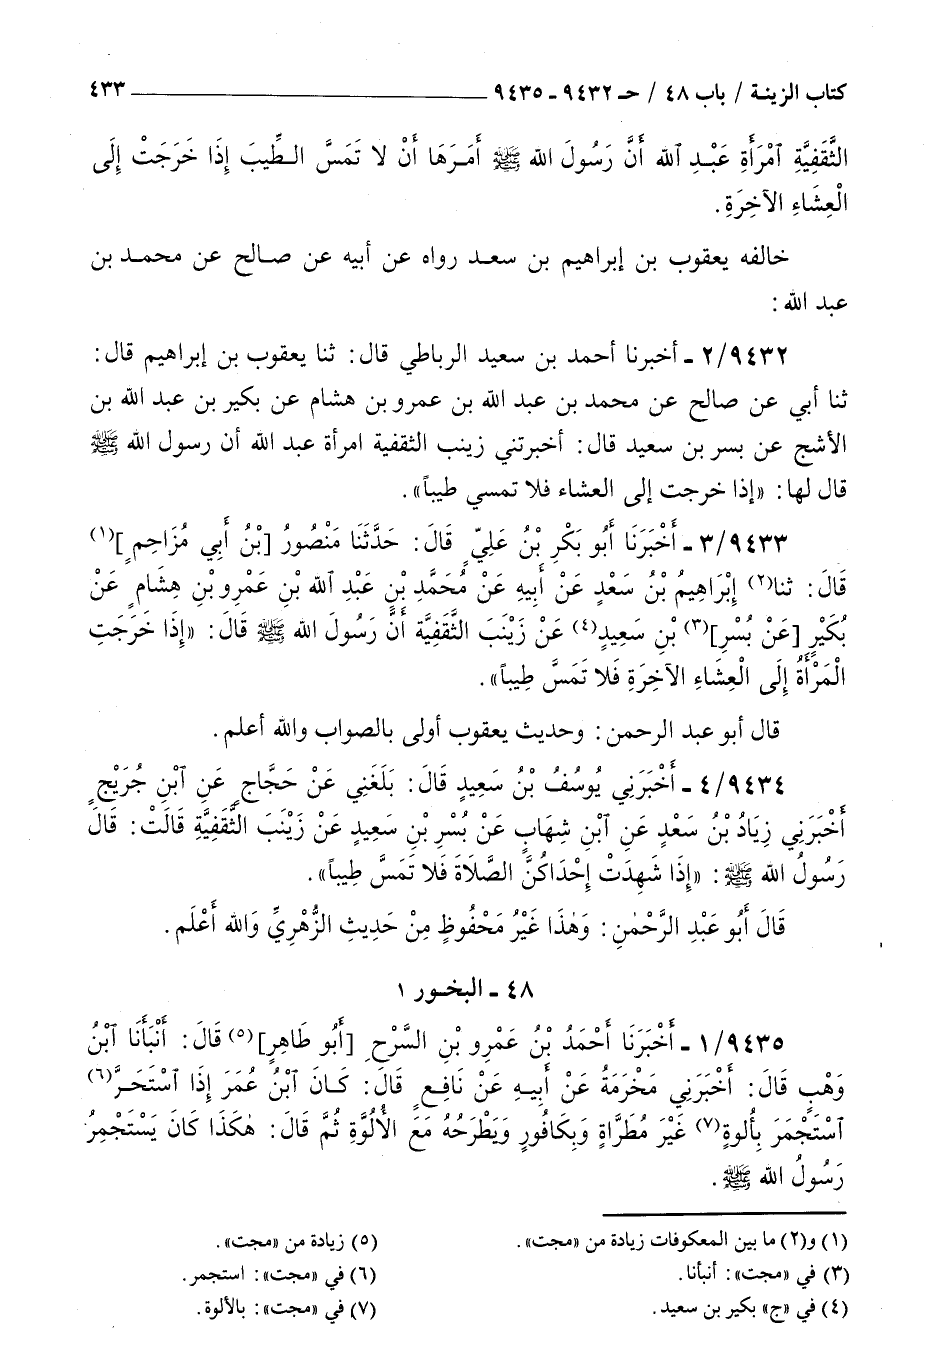 كتاب الزينة / باب ٤٨ / حـ ٩٤٣٢ ـ ٩٤٣٥ ٤٣٣
الثَّقَفِيَّةِ ٱمْرَأَةِ عَبْدِ ٱلله أَنَّ رَسُولَ الله ﷺ أَمَرَهَا أَنْ لا تَمَسَّ الطِّيبَ إِذَا خَرَجَتْ إِلَى
الْعِشَاءِ الآخِرَةِ.
خالفه يعقوب بن إبراهيم بن سعد رواه عن أبيه عن صالح عن محمد بن
عبد الله:
٢/٩٤٣٢ ـ أخبرنا أحمد بن سعيد الرباطي قال: ثنا يعقوب بن إبراهيم قال:
ثنا أبي عن صالح عن محمد بن عبد الله بن عمرو بن هشام عن بكير بن عبد الله بن
الأشج عن بسر بن سعيد قال: أخبرتني زينب الثقفية امرأة عبد الله أن رسول الله ﷺ
قال لها: «إذا خرجت إلى العشاء فلا تمسي طيباً».
٣/٩٤٣٣ ـ أَخْبَرَنَا أَبُو بَكْرِ بْنُ عَلِيٍّ قَالَ: حَدَّثَنَا مَنْصُورُ [بْنُ أَبِي مُزَاحِمٍ](١)
قَالَ: ثنا(٢) إِبْرَاهِيمُ بْنُ سَعْدٍ عَنْ أَبِيهِ عَنْ مُحَمَّدِ بْنِ عَبْدِ ٱلله بْنِ عَمْرِو بْنِ هِشَامٍ عَنْ
بُكَيْرٍ [عَنْ بُسْرِ](٣) بْنِ سَعِيدٍ(٤) عَنْ زَيْنَبَ الثَّقَفِيَّةِ أَنَّ رَسُولَ الله ﷺ قَالَ: «إِذَا خَرَجَتِ
الْمَرْأَةُ إِلَى الْعِشَاءِ الآخِرَةِ فَلا تَمَسَّ طِيباً».
قال أبو عبد الرحمن: وحديث يعقوب أولى بالصواب والله أعلم.
٤/٩٤٣٤ ـ أَخْبَرَنِي يُوسُفُ بْنُ سَعِيدٍ قَالَ: بَلَغَنِي عَنْ حَجَّاجٍ عَنِ ٱبْنِ جُرَيْجٍ
أَخْبَرَنِي زِيَادُ بْنُ سَعْدٍ عَنِ ٱبْنِ شِهَابٍ عَنْ بُسْرِ بْنِ سَعِيدٍ عَنْ زَيْنَبَ الثَّقَفِيَّةِ قَالَتْ: قَالَ
رَسُولُ الله ﷺ: «إِذَا شَهِدَتْ إِحْدَاكُنَّ الصَّلاَةَ فَلا تَمَسَّ طِيباً».
قَالَ أَبُو عَبْدِ الرَّحْمٰنِ: وَهٰذَا غَيْرُ مَحْفُوظٍ مِنْ حَدِيثِ الزُّهْرِيِّ وَالله أَعْلَم.
٤٨ ـ البخور ١
١/٩٤٣٥ ـ أَخْبَرَنَا أَحْمَدُ بْنُ عَمْرِو بْنِ السَّرْحِ [أَبُو طَاهِرٍ](٥) قَالَ: أَنْبَأَنَا ٱبْنُ
وَهْبٍ قَالَ: أَخْبَرَنِي مَخْرَمَةُ عَنْ أَبِيهِ عَنْ نَافِعٍ قَالَ: كَانَ ٱبْنُ عُمَرَ إِذَا ٱسْتَحَرَّ(٦)
ٱسْتَجْمَرَ بِأَلوةٍ(٧) غَيْرَ مُطَرَّاةٍ وَبِكَافُورٍ وَيَطْرَحُهُ مَعَ الأُلُوَّةِ ثُمَّ قَالَ: هٰكَذَا كَانَ يَسْتَجْمِرُ
رَسُولُ الله ﷺ.
(١) و(٢) ما بين المعكوفات زيادة من «مجت».
(٣) في «مجت»: أنبأنا.
(٤) في «ج» بكير بن سعيد.
(٥) زيادة من «مجت».
(٦) في «مجت»: استجمر.
(٧) في «مجت»: بالألوة.